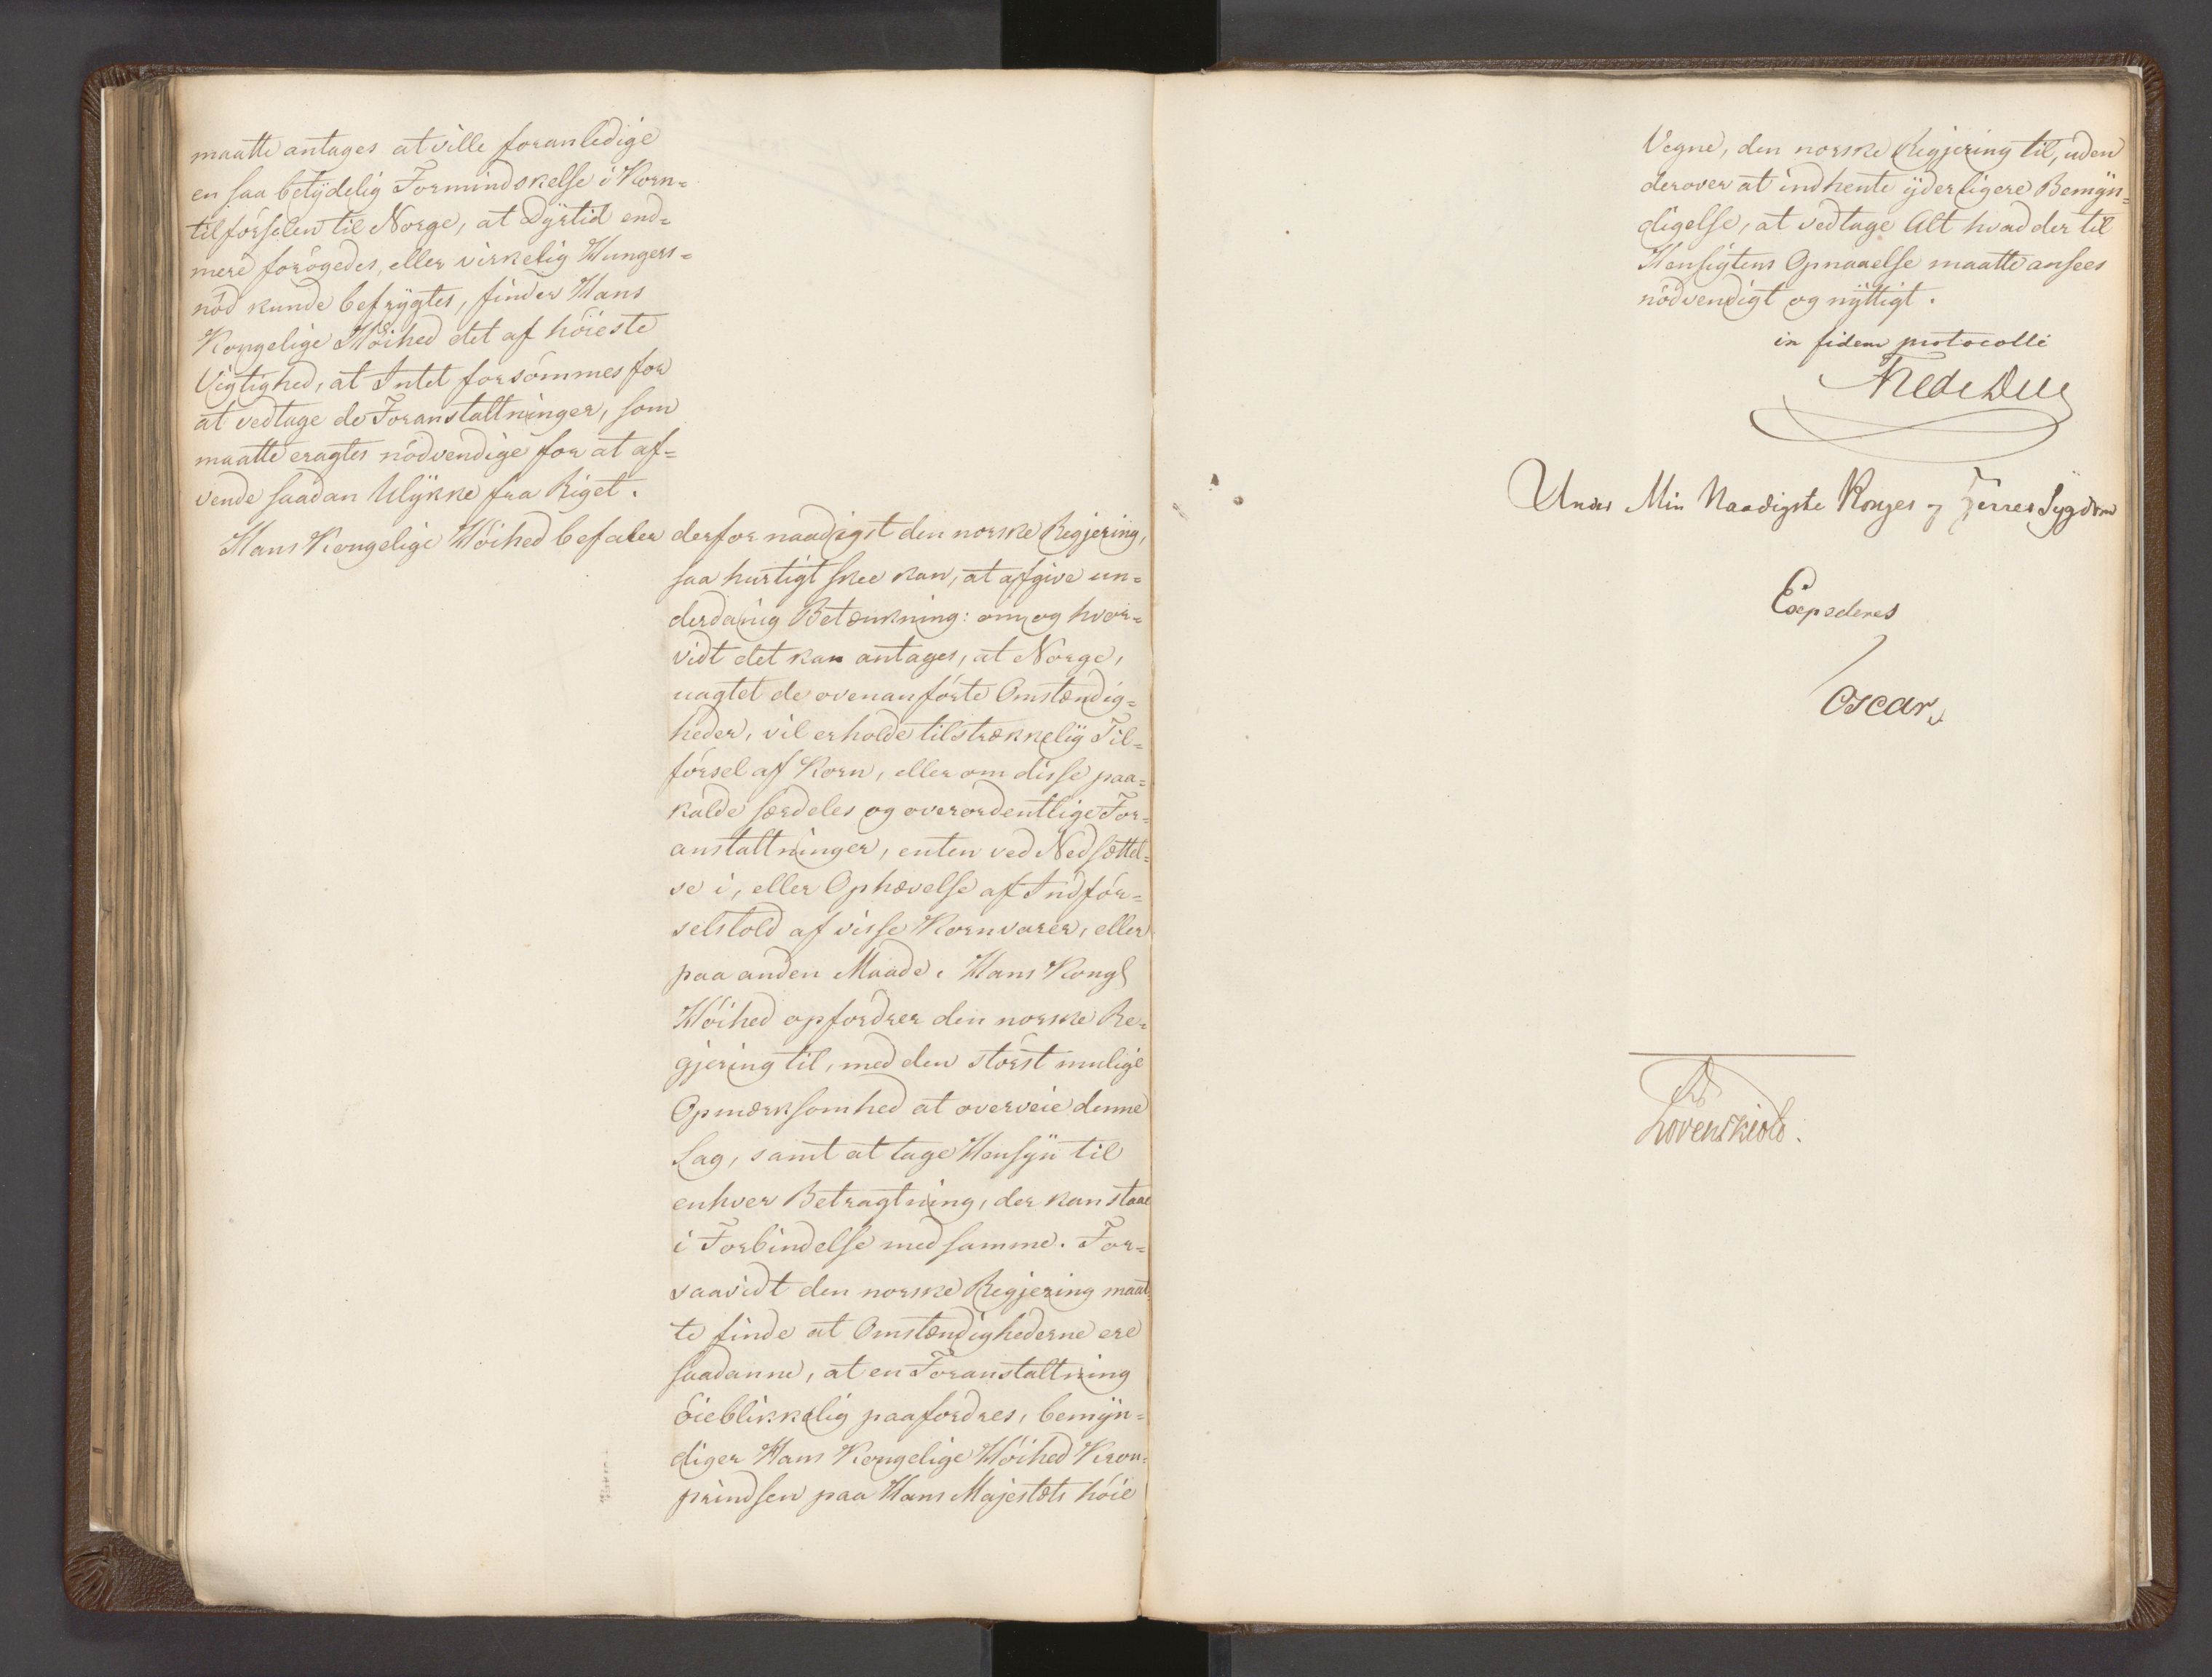 maatte antages at ville foranledige
en saa betydelig Formindskelse i Korn-
tilførselen til Norge, at Dyrtid end-
mere forøgedes, eller virkelig Hungers-
nød kunde befrygtes, finder Hans
Kongelige Høihed det af høieste
Vigtighed, at Intet forsømmes for
at vedtage de Foranstaltninger, som
maatte eragtes nødvendige for at af-
vende saadan Ulykke fra Riget.
Hans Kongelige Høihed befaler derfor naadigst den norske Regjering,
saa hurtigt skee kan, at afgive un-
derdanig Betænkning: om og hvor-
vidt det kan antages, at Norge,
uagtet de ovenanførte Omstændig-
heder, vil erholde tilstrækkelig Til-
førsel af Korn, eller om disse paa-
kalde særdeles og overordentlige For-
anstaltninger, enten ved Nedsættel-
se i, eller Ophævelse af Indfør-
selstold af visse Kornvarer, eller
paa anden Maade. Hans Kongl
Høihed opfordrer den norske Re-
gjering til, med den størst mulige
Opmærksomhed at overveie denne
Sag, samt at tage Hensyn til
enhver Betragtning, der kan staae
i Forbindelse med samme. For-
saavidt den norske Regjering maat-
te finde at Omstændighederne ere
saadanne, at en Foranstaltning
øieblikkelig paafordres, bemyn-
diger Hans Kongelige Høihed Kron-
prindsen paa Hans Majestæts høie
Vegne, den norske Regjering til, uden
derover at indhente yderligere Bemyn-
digelse, at vedtage Alt hvad der til
Hensigtens Opnaaelse maatte ansees
nødvendigt og nyttigt.
in fidem protocolli
Fred. Due
Under Min Naadigste Konges og Herres Sygdom
Expederes
Oscar
Løvenskiold.